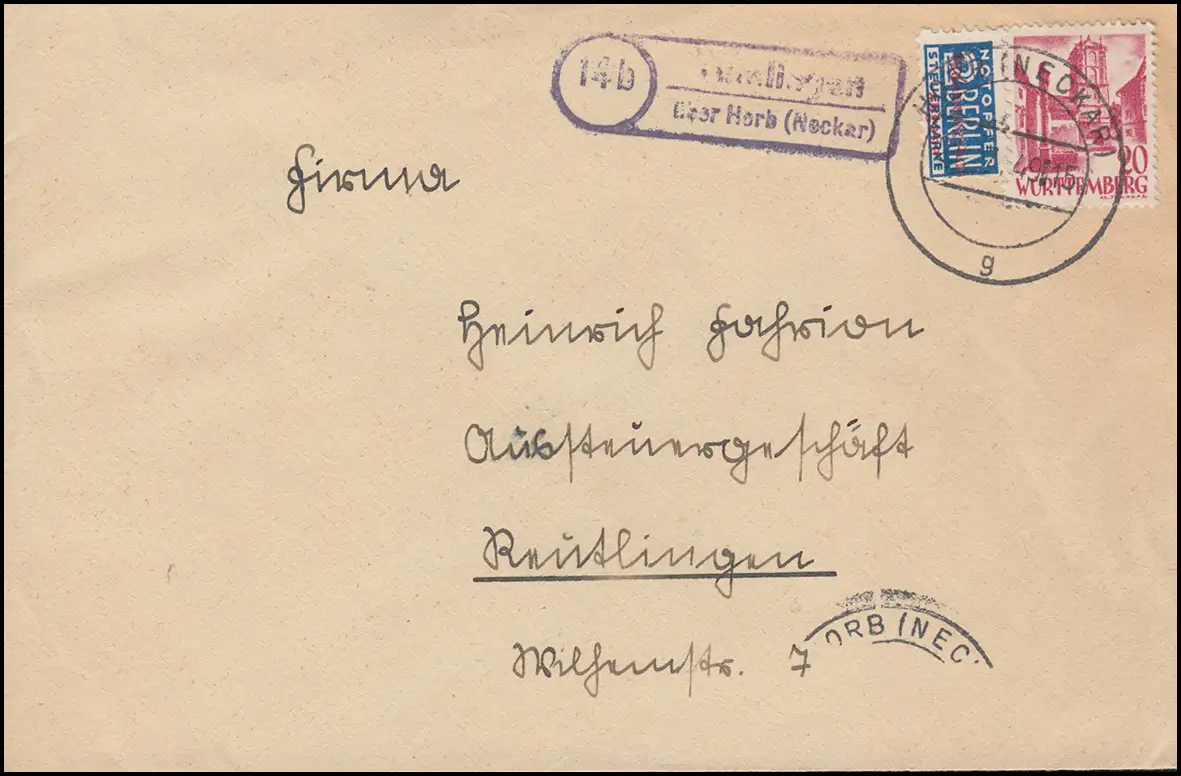 14b
über Horb (Neckar)
NOTOPFER
2 BERLIN
STEUERMARKE
20
WÜRTTEMBERG
(NECKAR)
g
Firma
Heinrich Fahrion
Aussteuergeschäft
Reutlingen
Wilhemstr. 7
ORB (NEC